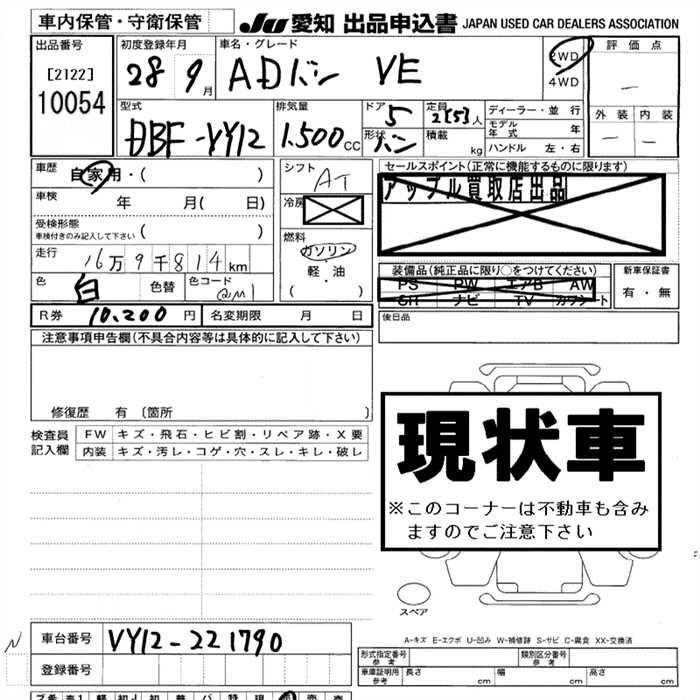 車内保管・守衛保管
JU愛知 出品申込書 JAPAN USED CAR DEALERS ASSOCIATION
出品番号
[2122]
10054
初度登録年月
28 9月
車名・グレード
ADバン VE
2WD
4WD
評価点
―
外装 内装
― ―
型式
DBF-VY12
排気量
1.500cc
ドア 5
形状 バン
定員 2(5)人
積載 kg
ディーラー・並行
モデル年式 年
ハンドル 左・右
車歴
自家用・( )
車検 年 月( 日)
受検形態
車検付きのみ記入して下さい ( )
走行 16万9千814km
色 白 色替 色コード QM1
シフト AT
冷房
燃料
ガソリン
・軽・油
( )
セールスポイント(正常に機能するものに限ります)
アップル買取店出品
装備品(純正品に限り○をつけてください)
PS PW エアB AW
SR ナビ TV カワシート
新車保証書
有・無
R券 10,200円 名変期限 月 日
後日品
注意事項申告欄(不具合内容等は具体的に記入して下さい)
修復歴 有 [箇所 ]
検査員記入欄
FW キズ・飛石・ヒビ割・リペア跡・X要
内装 キズ・汚レ・コゲ・穴・スレ・キレ・破レ
現状車
※このコーナーは不動車も含み
ますのでご注意下さい
スペア
A-キズ E-エクボ U-凹み W-補修跡 S-サビ C-腐食 XX-交換済
N
車台番号 VY12-221790
登録番号
形式指定番号 参考
類別区分番号 参考
車庫証明用 参考 長さ cm 幅 cm 高さ cm